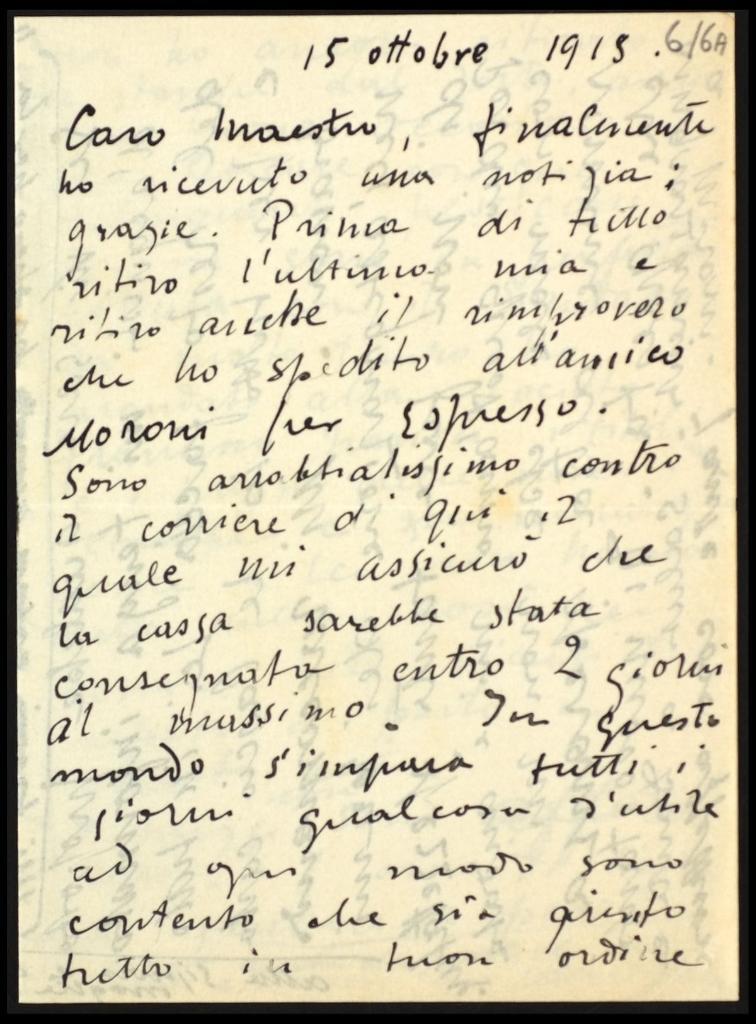 15 ottobre 1915. 6/6A
Caro Maestro, finalmente
ho ricevuto una notizia;
grazie. Prima di tutto
ritiro l'ultima mia e
ritiro anche il rimprovero
che ho spedito all'amico
Moroni per Espresso.
Sono arrabbiatissimo contro
il corriere di qui il
quale mi assicurò che
la cassa sarebbe stata
consegnata entro 2 giorni
al massimo. In questo
mondo s'impara tutti i
giorni qualcosa d'utile
ad ogni modo sono
contento che sia giunto
tutto in buon ordine